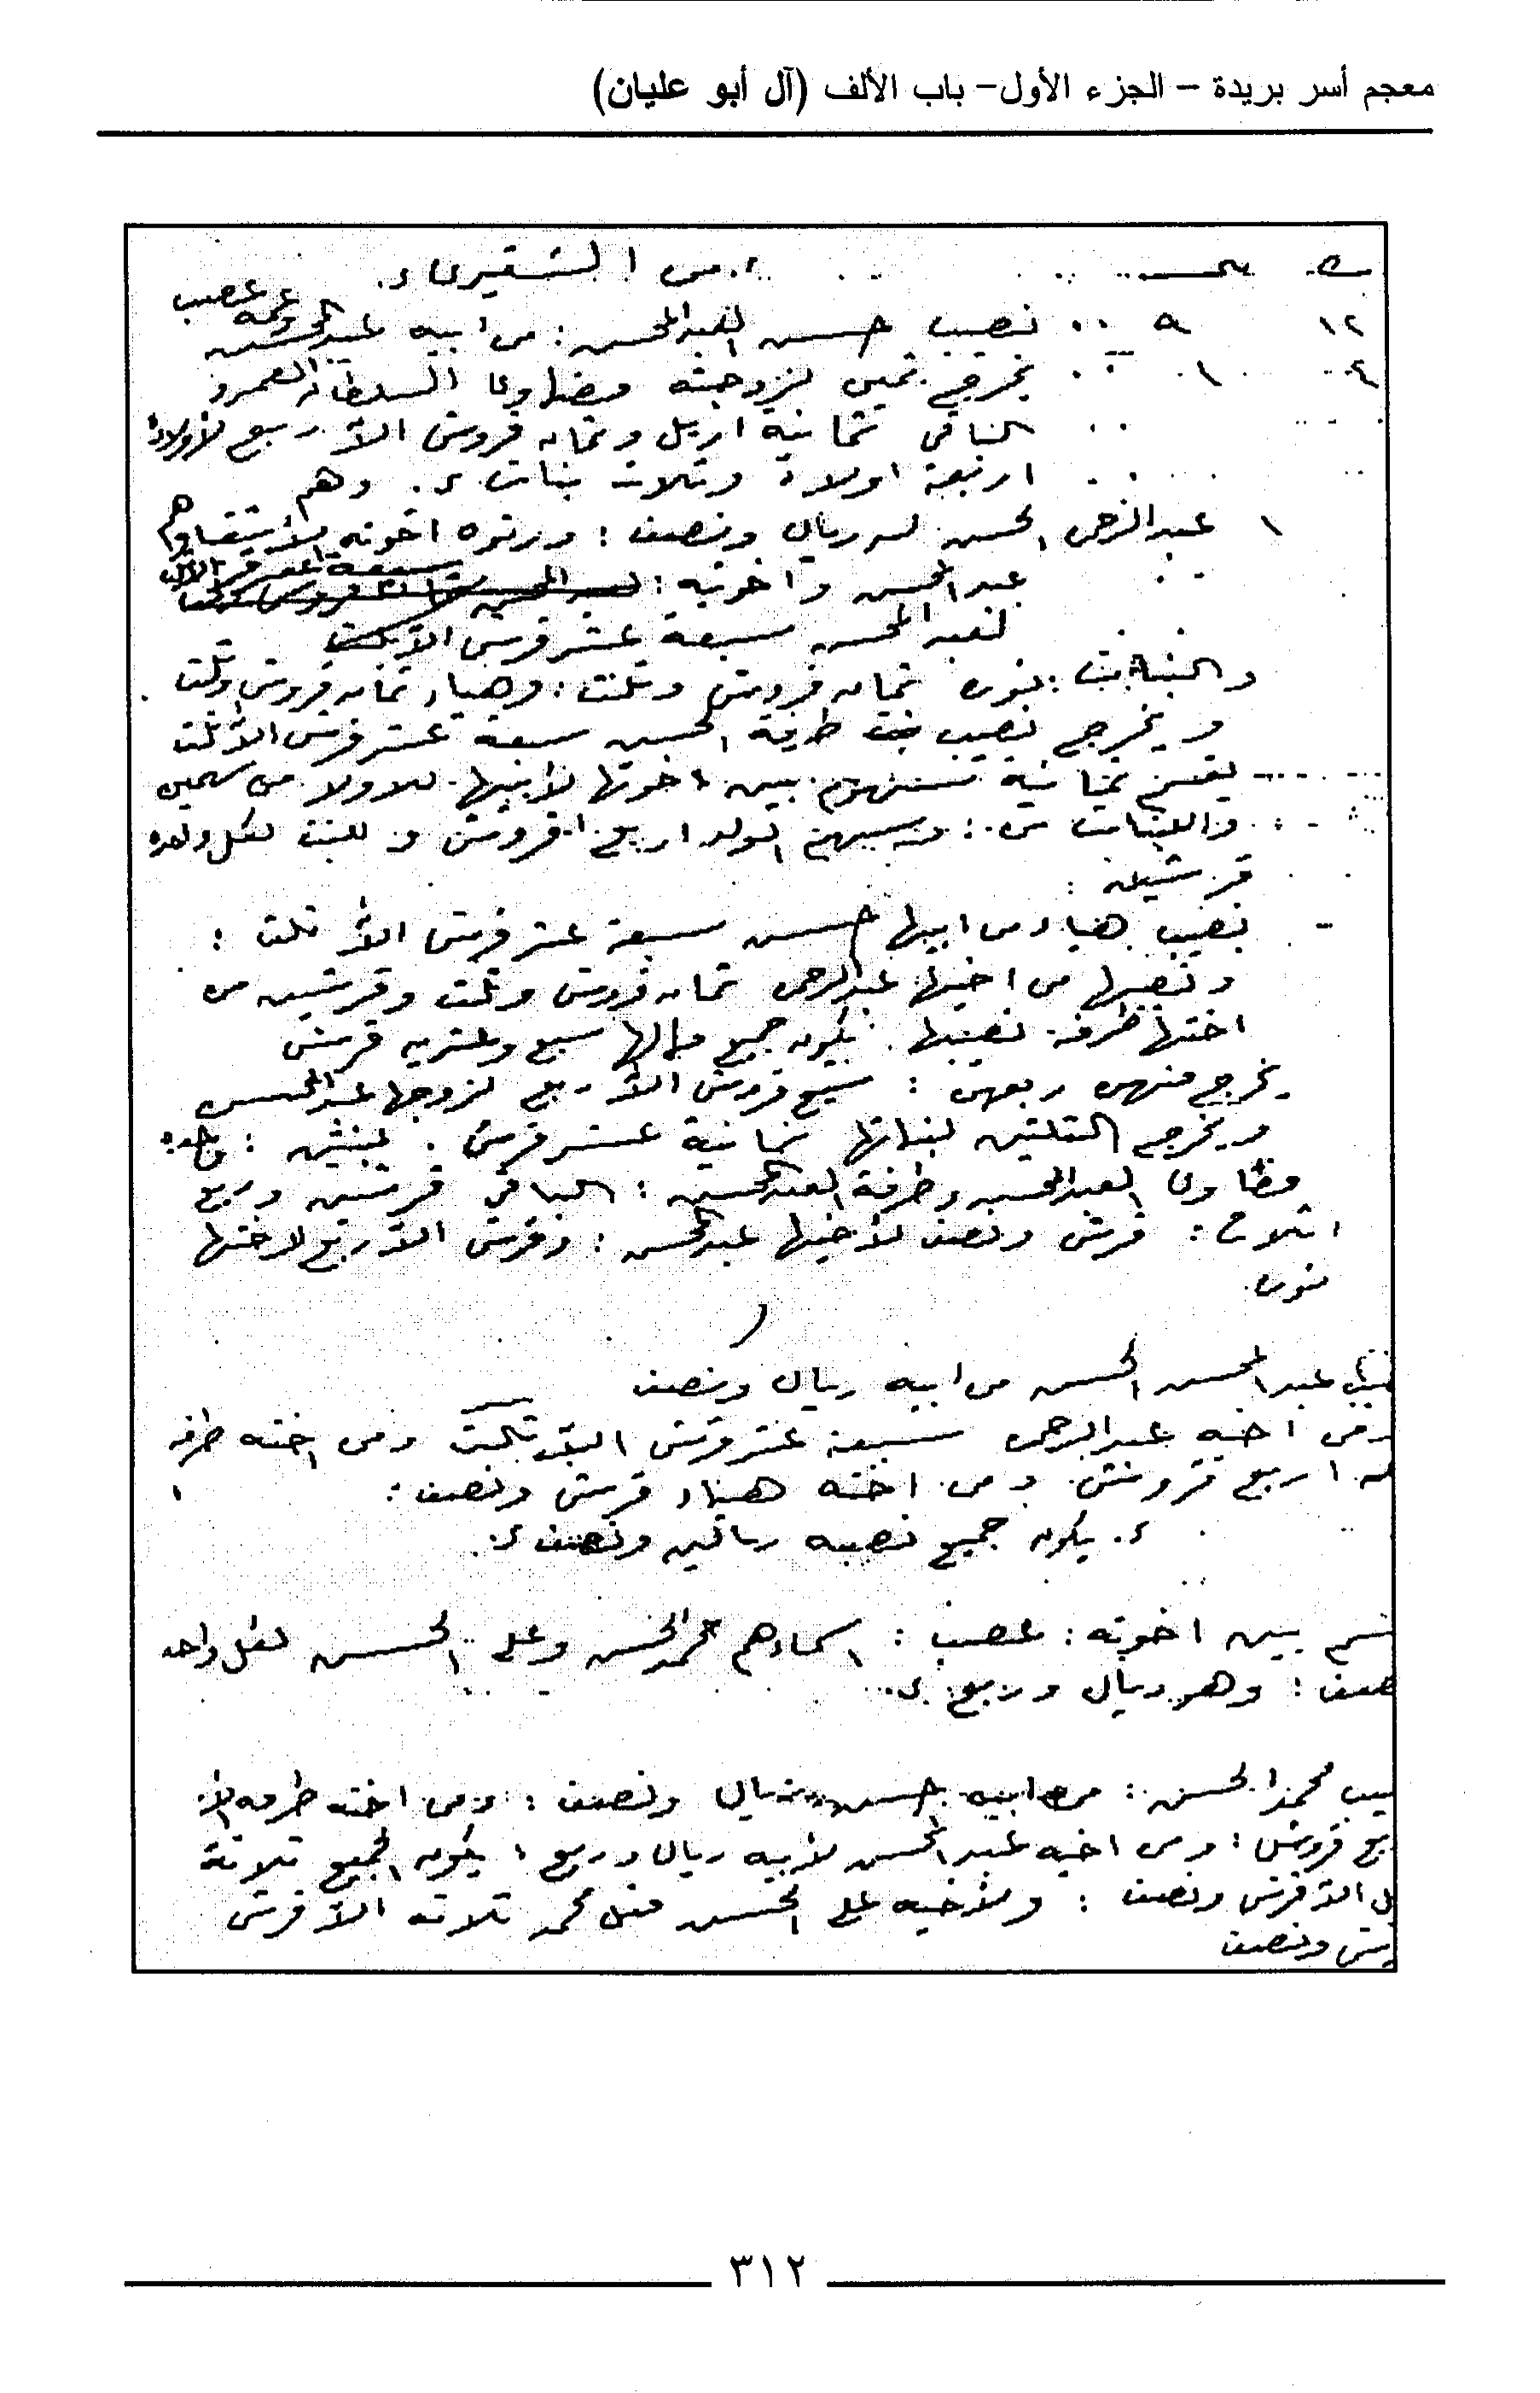 معجم أسر بريدة – الجزء الأول– باب الألف (آل أبو عليان)
من الشقيري
عصب
١٢ ٩ نصيب حسن العبدالمحسن : من ابيه عبدالمحسن
٤ ١ يخرج ثمين لزوجته مضاوي السلطان العمرو
الباقي ثمانية اريل وثمان قروش الا ربع لاولاده
اربعة اولاد وثلاث بنات وهم
١ عبدالرحمن الحسن له ريال ونصف : وورثوه اخوته لاشقاهم
عبدالمحسن واخوته :
لعبدالمحسن سبعة عشر قرش الا ثلث
والبنات : نوره ثمان قروش وثلث : وهيا ثمان قروش وثلث
ويخرج نصيب بنت طرفة الحسن سبعة عشر قرش الا ثلث
يقسم ثمانية بين اخوتها لابيها للاولاد من سهمين
والبنات سهم الولد اربع قروش وللبنت لكل وحده
قرشين :
نصيب هيا من ابيها حسن سبعة عشر قرش الا ثلث :
ونصيبها من اخيها عبدالرحمن ثمان قروش وثلث وقرشين من
اختها طرفة نصيبها يكون جميع مالها سبع وعشرين قرش
يخرج منهن ربعهن : سبع قروش الا ربع لزوجها عبدالمحسن
ويخرج الثلثين لبناتها ثمانية عشر قرش . لبنتين : وحده
مضاوي العبدالمحسن وطرفة العبدالمحسن : الباقي قرشين وربع
اثلاث : قرش ونصف لاخيها عبدالمحسن : وقرش الا ربع لاختها
نوره
نصيب عبدالمحسن الحسن من ابيه ريال ونصف
ومن اخيه عبدالرحمن سبعة عشر قرش الا ثلث ومن اخته طرفه
اربع قروش ومن اخته هيا قرش ونصف :
يكون جميع نصيبه ريالين ونصف
قسم بين اخوته : عصب : اسماؤهم محمد الحسن وعلي الحسن لكل واحد
نصف : وهو ريال وربع
نصيب محمد الحسن : من ابيه حسن ريال ونصف : ومن اخته طرفه
اربع قروش : ومن اخيه عبدالمحسن لابيه ريال وربع : يكون الجميع ثلاثة
الا قرش ونصف : ولاخيه علي الحسن مثل محمد ثلاثة الا قرش
ونصف
٣١٢